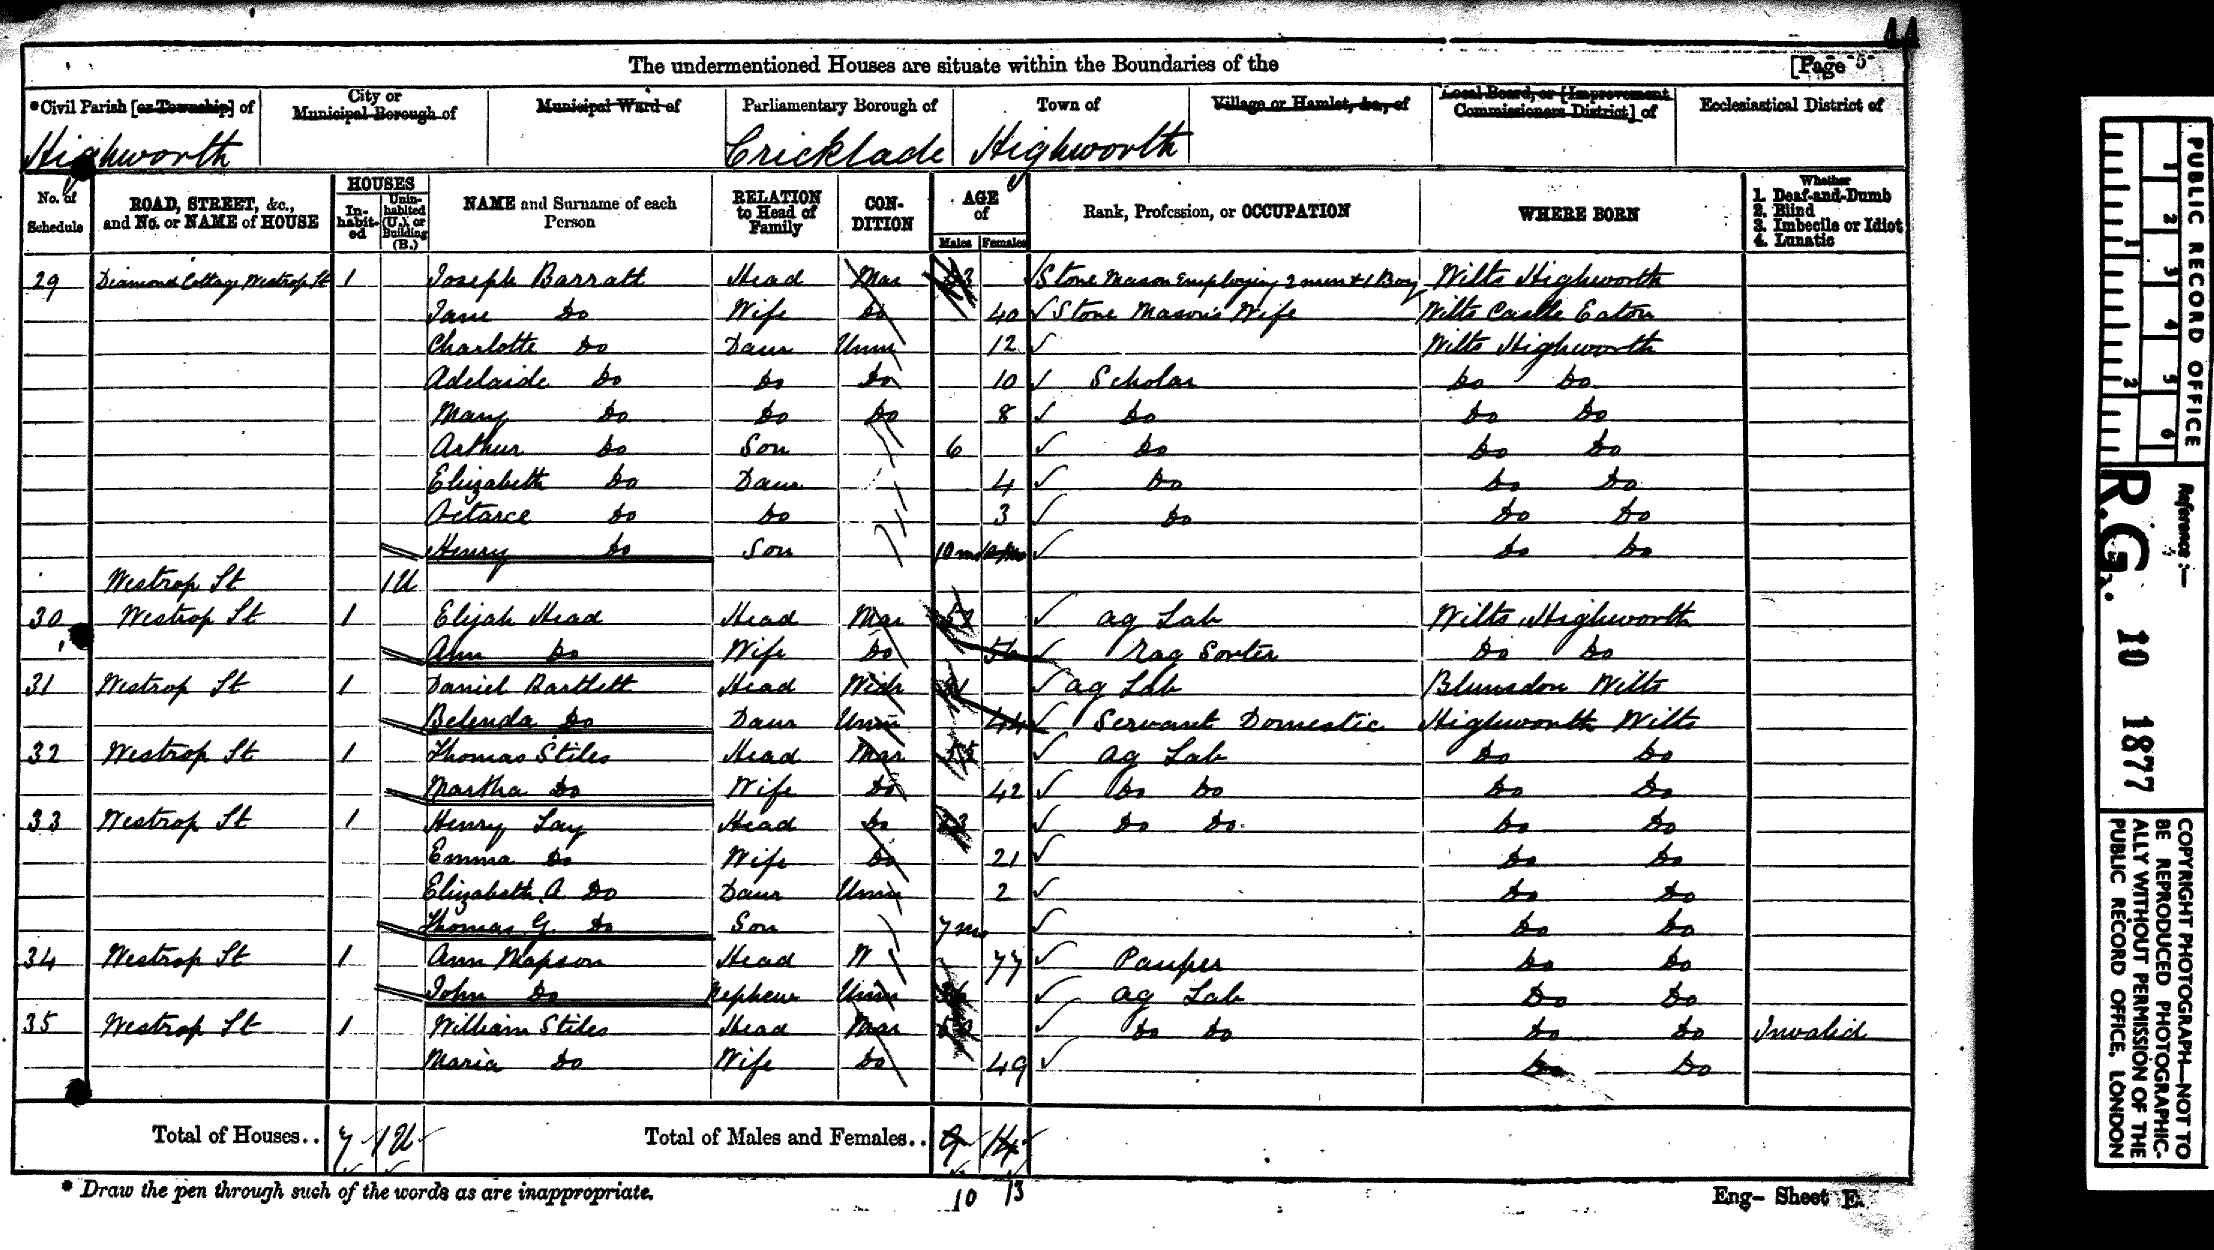 44
The undermentioned Houses are situate within the Boundaries of the [Page 5
*Civil Parish [or Township] of City or Municipal Borough of Municipal Ward of Parliamentary Borough of Town of Village or Hamlet, &c., of Local Board, or [Improvement Commissioners District] of Ecclesiastical District of
Highworth Cricklade Highworth
No. of Schedule ROAD, STREET, &c., and No. or NAME of HOUSE HOUSES In-habit-ed Unin-habited (U.), or Building (B.) NAME and Surname of each Person RELATION to Head of Family CON-DITION AGE of Males Females Rank, Profession, or OCCUPATION WHERE BORN Whether 1. Deaf-and-Dumb 2. Blind 3. Imbecile or Idiot 4. Lunatic
29 Diamond Cottage Westrop St 1 Joseph Barratt Head Mar Stone Mason Employing 2 men & 1 Boy Wilts Highworth
Jane Do Wife Do 40 Stone Mason's Wife Wilts Castle Eaton
Charlotte Do Daur Unm 12 Wilts Highworth
Adelaide Do Do Do 10 Scholar Do Do
Mary Do Do Do 8 Do Do Do
Arthur Do Son 6 Do Do Do
Elizabeth Do Daur 4 Do Do Do
Do Do 3 Do Do Do
Henry Do Son 10 m Do Do
Westrop St 1 U
30 Westrop St 1 Elijah Head Head Mar Ag Lab Wilts Highworth
Ann Do Wife Do Rag Sorter Do Do
31 Westrop St 1 Daniel Bartlett Head Widr Ag Lab Blunsdon Wilts
Belenda Do Daur Unm 44 Servant Domestic Highworth Wilts
32 Westrop St 1 Thomas Stiles Head Mar Ag Lab Do Do
Martha Do Wife Do 42 Do Do Do Do
33 Westrop St 1 Henry Lay Head Do Do Do Do Do
Emma Do Wife Do 21 Do Do
Elizabeth A Do Daur Unm 2 Do Do
Thomas G. Do Son 7 mo Do Do
34 Westrop St 1 Ann Mapson Head W 77 Pauper Do Do
John Do Nephew Unm Ag Lab Do Do
35 Westrop St 1 William Stiles Head Mar Do Do Do Do Invalid
Maria Do Wife Do 49 Do Do
Total of Houses.. 7 1 U Total of Males and Females.. 9 14
* Draw the pen through such of the words as are inappropriate. 10 13 Eng- Sheet E.
PUBLIC RECORD OFFICE
1 2 3 4 5 6
1 2
Reference :-
R.G. 10 1877
COPYRIGHT PHOTOGRAPH—NOT TO
BE REPRODUCED PHOTOGRAPHIC-
ALLY WITHOUT PERMISSION OF THE
PUBLIC RECORD OFFICE, LONDON